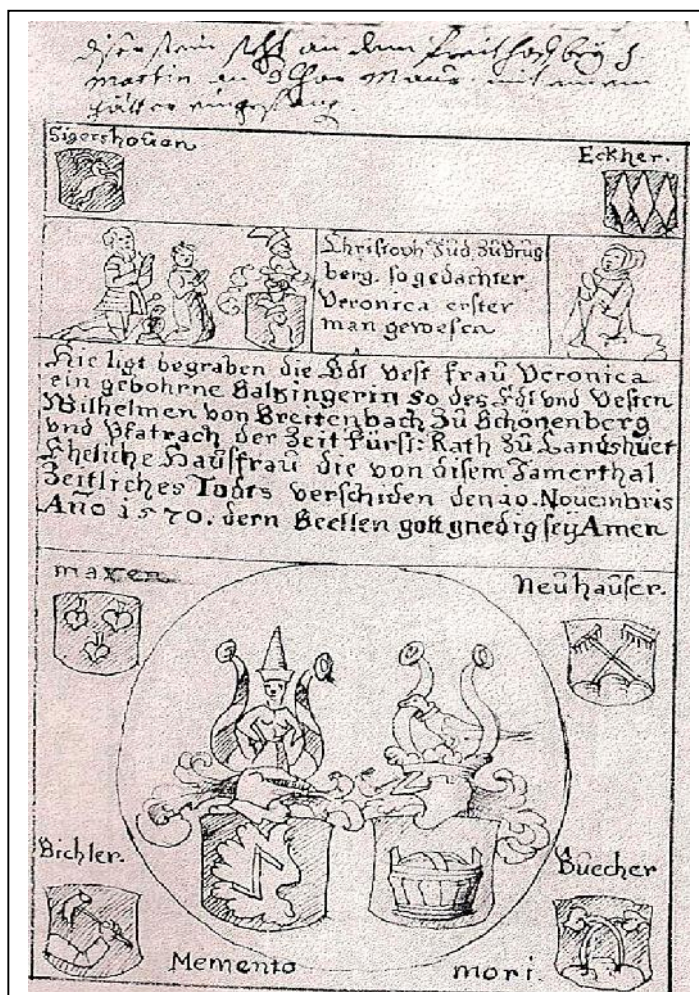 Diser stein steht an dem freithoff bey S.
martin an der Maur mit einem
gätter eingefang.
Sigershouen
Eckher.
Christoph Züd Zu Brug
berg. so gedachter
Veronica erster
man gewesen
Hie ligt begraben die Edl Vest fraü Veronica
ein gebohrne Balzingerin so des Edl vnd Vesten
Wilhelmen von Breitenbach Zü Schönenberg
vnd Pfatrach der Zeit fürst: Rath Zü Landshüet
Eheliche Haüsfraü die von disem Jamerthal
Zeitliches Todts verschiden den 20. Nouembris
Año 1570. dern Seellen gott gnedig seÿ Amen
maxen
Neühaüser.
Bichler.
Buecher
Memento mori.